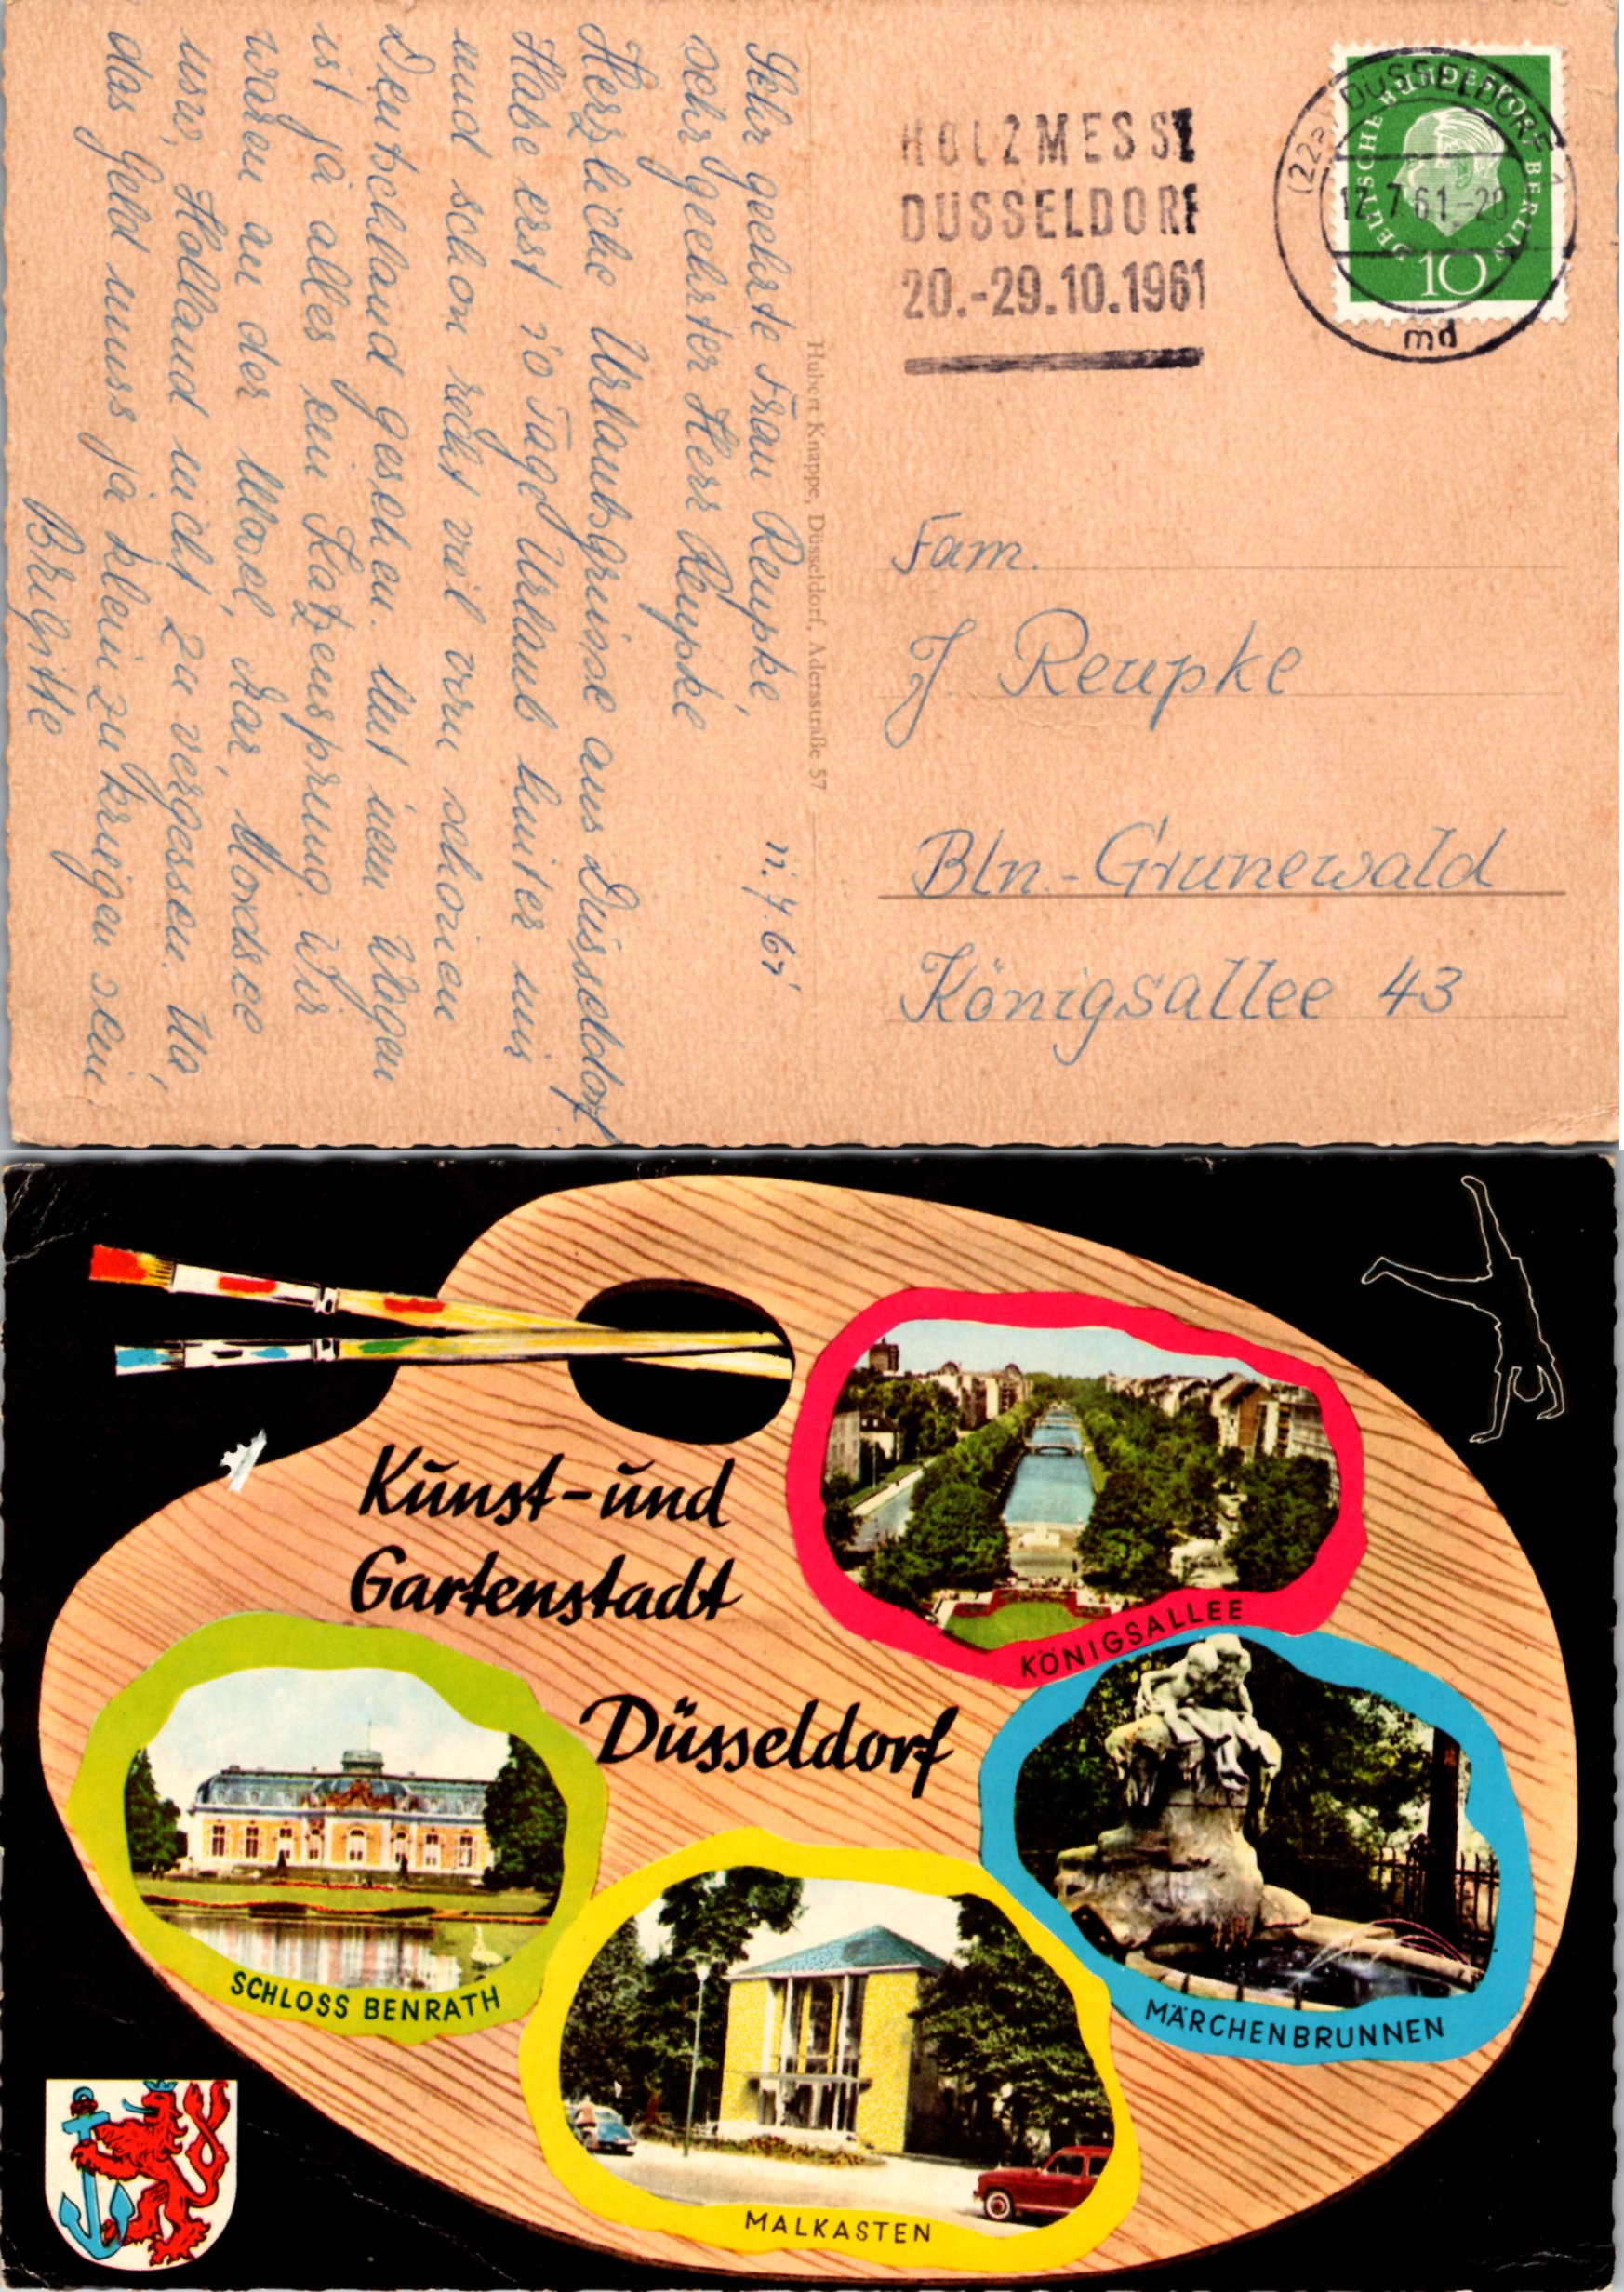 Sehr geehrte Frau Reupke,
11.7.61
sehr geehrter Herr Reupke
Herzliche Urlaubsgrüsse aus Düsseldorf
Habe erst 10 Tage Urlaub hinter mir
und schon recht viel vom schönen
Deutschland gesehen. Mit nem Wagen
ist ja alles ein Katzensprung. Wir
waren an der Mosel, Aar, Nordsee
usw, Holland nicht zu vergessen. Na,
das Geld muss ja klein zu kriegen sein.
Brigitte
Hubert Knappe, Düsseldorf, Adersstraße 57
HOLZMESSE
DÜSSELDORF
20.-29.10.1961
(22a) DÜSSELDORF 1
12.7.61-20
md
DEUTSCHE BUNDESPOST BERLIN
10
Fam.
J. Reupke
Bln.-Grunewald
Königsallee 43
Kunst-und
Gartenstadt
Düsseldorf
KÖNIGSALLEE
SCHLOSS BENRATH
MÄRCHENBRUNNEN
MALKASTEN